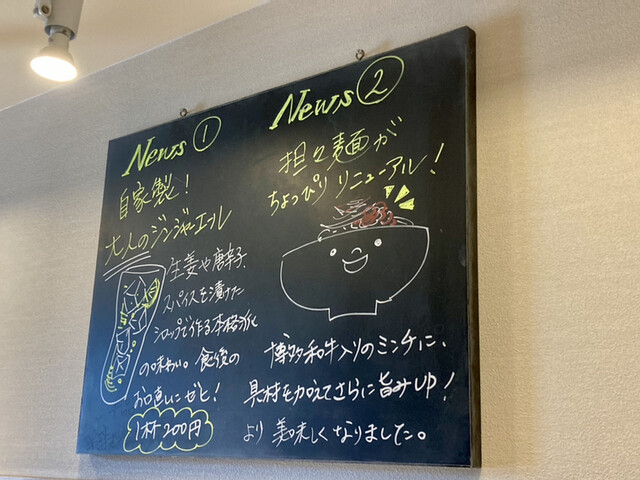 News ①
自家製！
大人のジンジャーエール
生姜や唐辛子、
スパイスを漬けた
シロップで作る本格派
の味わい。食後の
お口直しにゼヒ！
1杯200円
News ②
担々麺が
ちょっぴりリニューアル！
博多和牛入りのミンチに、
具材を加えてさらに旨みUP！
より美味しくなりました。